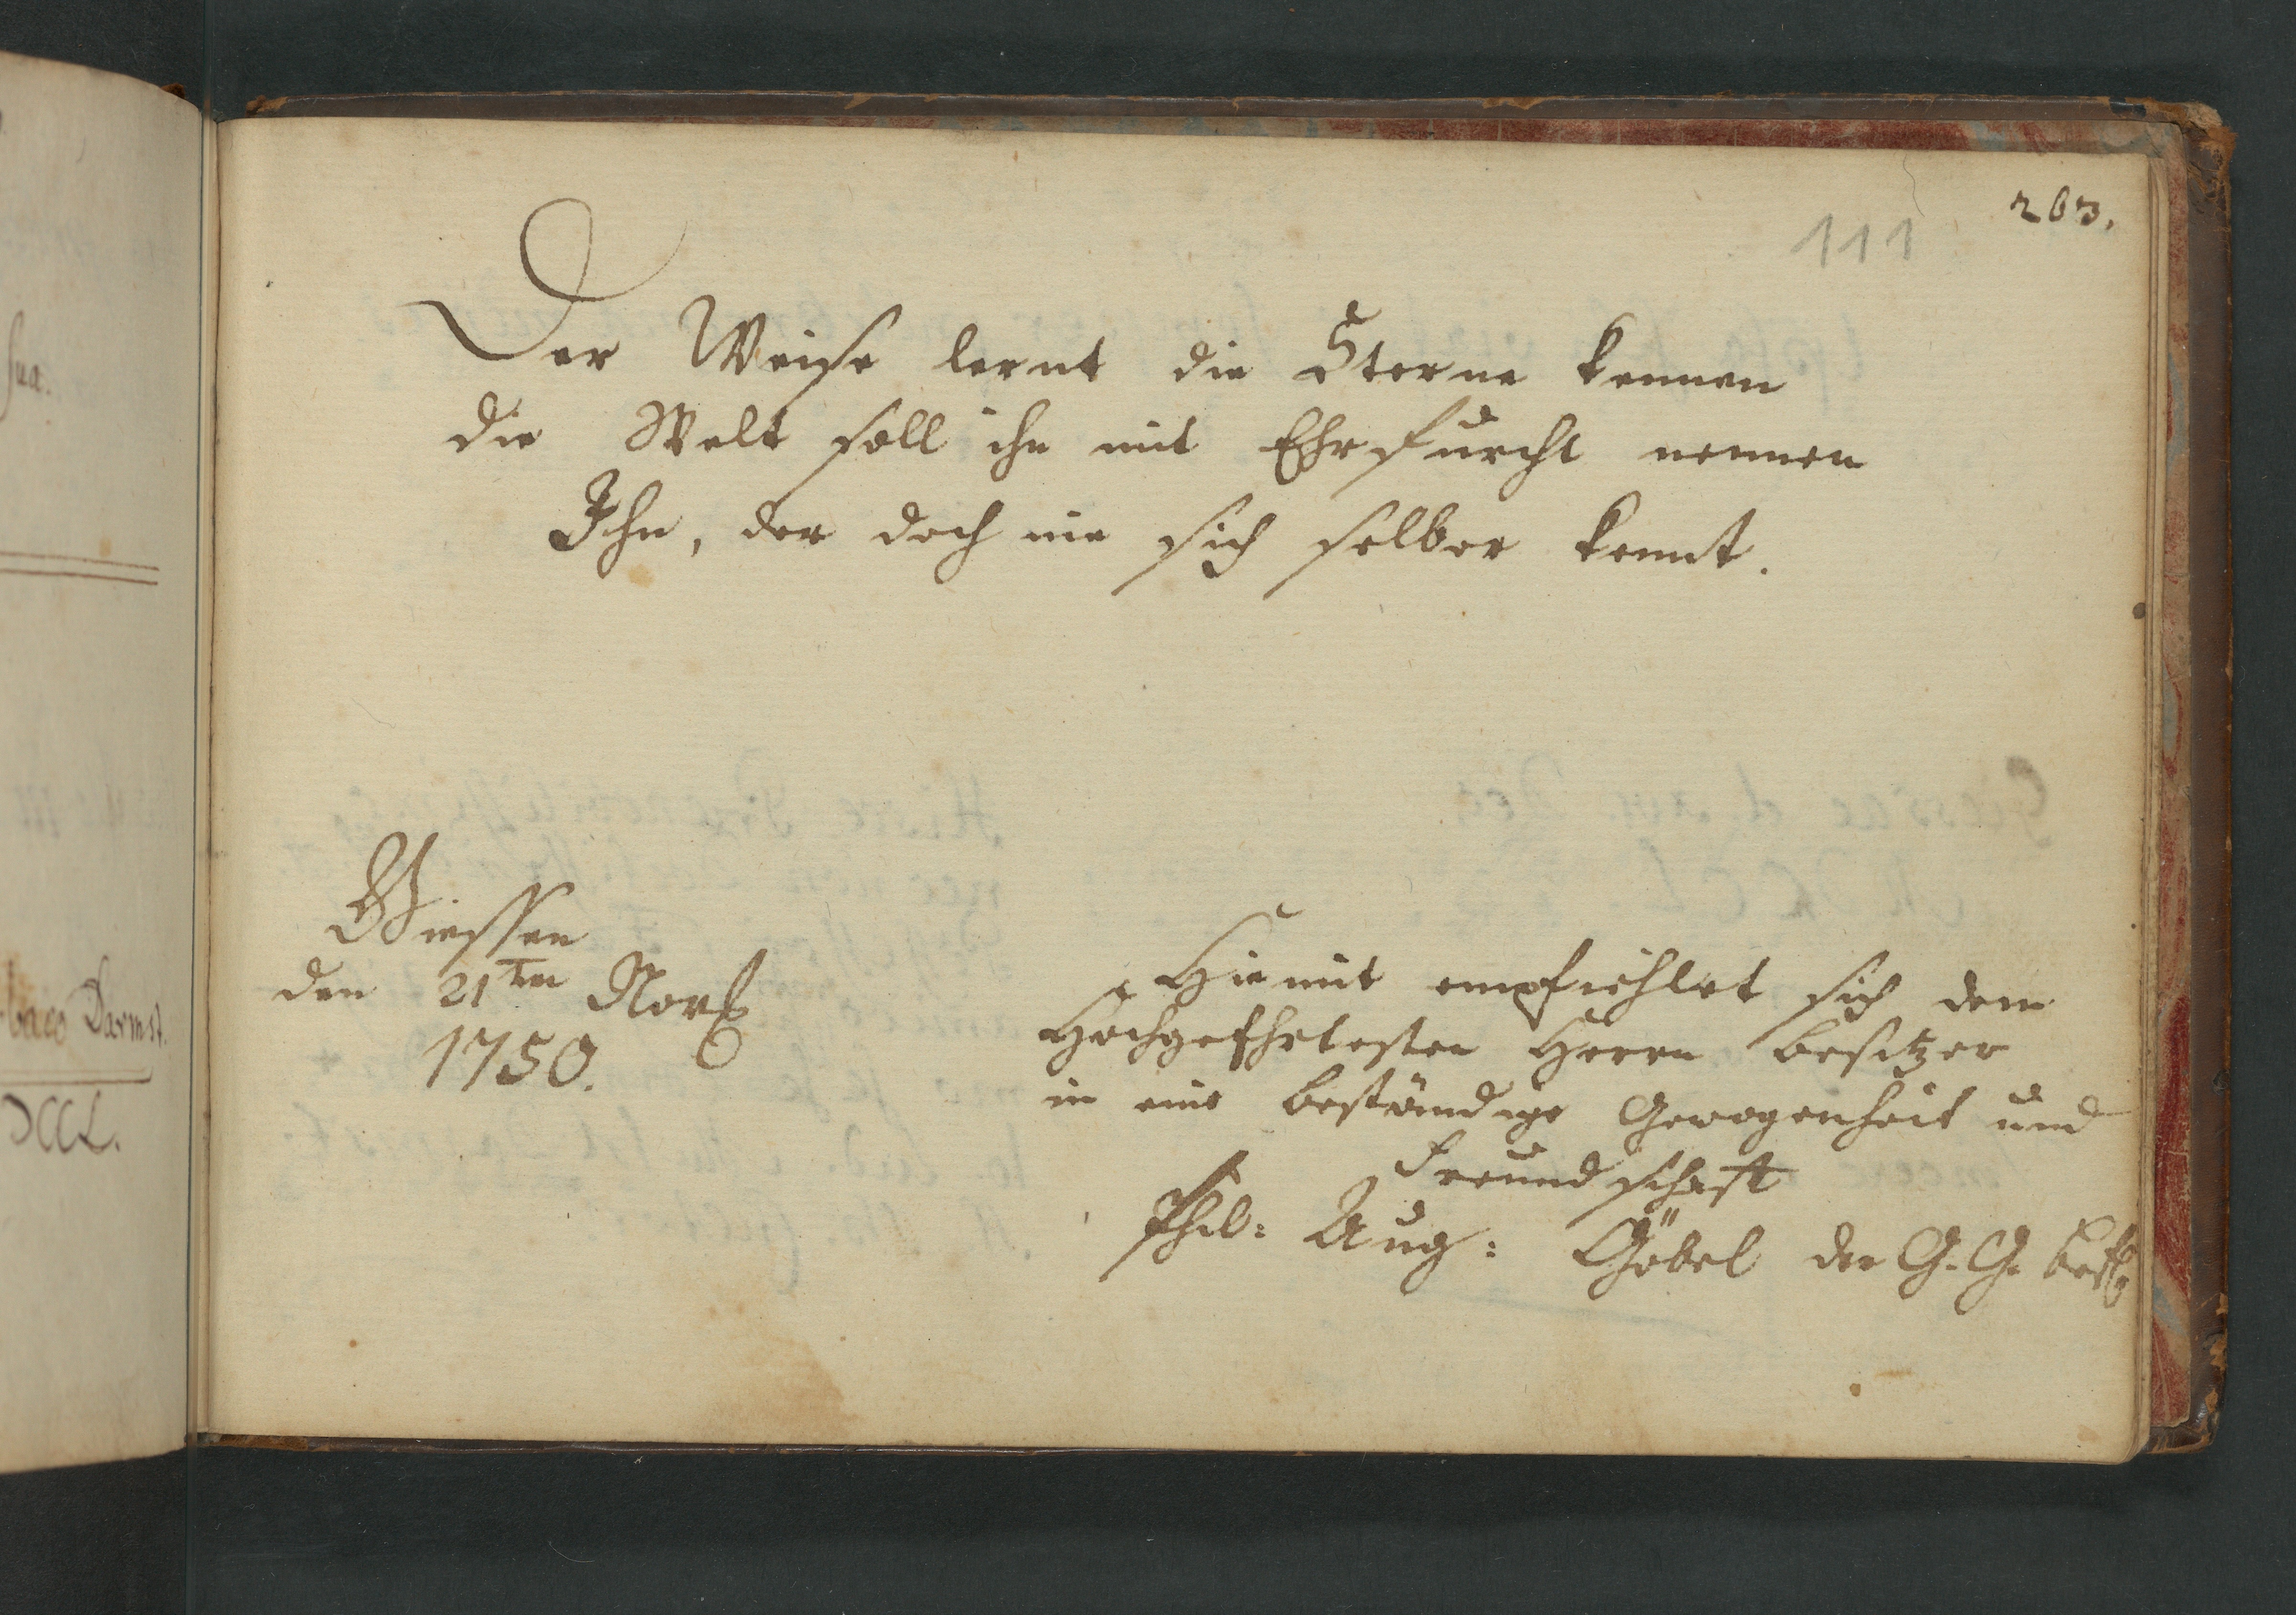 203.
111
Der Weise lernt die Sterne kennen
die Welt soll ihn mit Ehrfurcht nennen
Ihn, der doch nie sich selber kennt.
Giessen
den 21ten Novb
1750.
Hiemit empfiehlet sich dem
Hochgeehrtesten Herrn besitzer
in eine beständige Gewogenheit und
Freundschaft
Phil: Aug: Göbel der G. G. befl
sua.
baco Darmst.
DCCL.